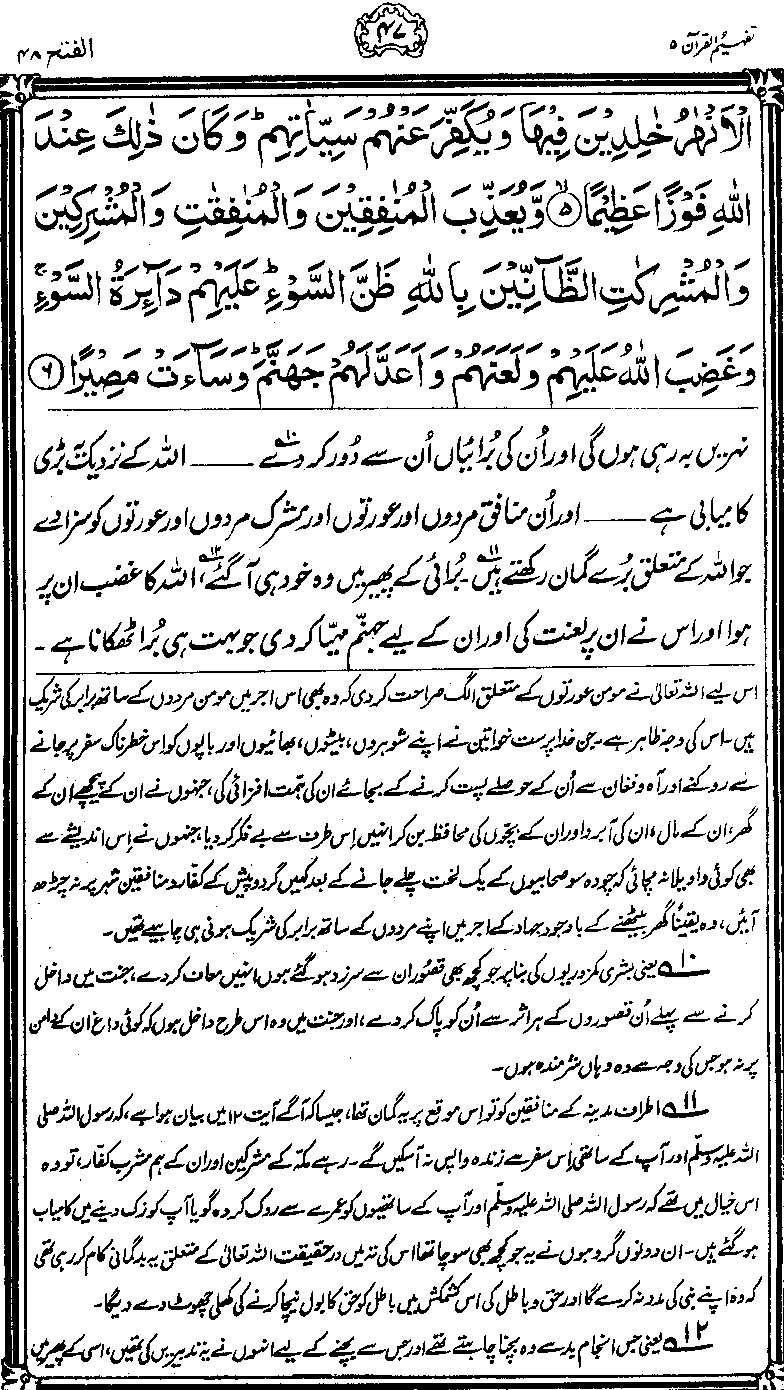 تفہیم القرآن ۵
۴۷
الفتح ۴۸
الْاَنْهٰرُ خٰلِدِيْنَ فِيْهَا وَيُكَفِّرَ عَنْهُمْ سَيِّاٰتِهِمْ ؕ وَكَانَ ذٰلِكَ عِنْدَ
اللّٰهِ فَوْزًا عَظِيْمًا ۙ﴿۵﴾ وَّيُعَذِّبَ الْمُنٰفِقِيْنَ وَالْمُنٰفِقٰتِ وَالْمُشْرِكِيْنَ
وَالْمُشْرِكٰتِ الظَّآنِّيْنَ بِاللّٰهِ ظَنَّ السَّوْءِ ؕ عَلَيْهِمْ دَآئِرَةُ السَّوْءِ ۚ
وَغَضِبَ اللّٰهُ عَلَيْهِمْ وَلَعَنَهُمْ وَاَعَدَّ لَهُمْ جَهَنَّمَ ؕ وَسَآءَتْ مَصِيْرًا ﴿۶﴾
نہریں بہ رہی ہوں گی اور اُن کی بُرائیاں اُن سے دُور کر دے۱۰ ــــ اللہ کے نزدیک یہ بڑی
کامیابی ہے ــــ اور اُن منافق مردوں اور عورتوں اور مشرک مردوں اور عورتوں کو سزا دے
جو اللہ کے متعلق بُرے گمان رکھتے ہیں۱۱۔ بُرائی کے پھیر میں وہ خود ہی آ گئے۱۲، اللہ کا غضب ان پر
ہوا اور اس نے ان پر لعنت کی اور ان کے لیے جہنّم مہیّا کر دی جو بہت ہی بُرا ٹھکانا ہے۔
اس لیے اللہ تعالیٰ نے مومن عورتوں کے متعلق الگ صراحت کر دی کہ وہ بھی اس اجر میں مومن مردوں کے ساتھ برابر کی شریک
ہیں۔ اس کی وجہ ظاہر ہے۔ جن خدا پرست خواتین نے اپنے شوہروں، بیٹوں، بھائیوں اور باپوں کو اس خطرناک سفر پر جانے
سے روکنے اور آہ و فغان سے اُن کے حوصلے پست کرنے کے بجائے ان کی ہمّت افزائی کی، جنہوں نے ان کے پیچھے ان کے
گھر، ان کے مال، ان کی آبرو اور ان کے بچّوں کی محافظ بن کر انہیں اِس طرف سے بے فکر کر دیا، جنہوں نے اِس اندیشے سے
بھی کوئی واویلا نہ مچائی کہ چودہ سو صحابیوں کے یک لخت چلے جانے کے بعد کہیں گرد و پیش کے کفار و منافقین شہر پر نہ چڑھ
آئیں، وہ یقیناً گھر بیٹھنے کے باوجود جہاد کے اجر میں اپنے مردوں کے ساتھ برابر کی شریک ہونی ہی چاہیے تھیں۔
۱۰ یعنی بشری کمزوریوں کی بنا پر جو کچھ بھی قصُور ان سے سرزد ہو گئے ہوں انہیں معاف کر دے، جنت میں داخل
کرنے سے پہلے اُن قصوروں کے ہر اثر سے اُن کو پاک کر دے، اور جنت میں وہ اس طرح داخل ہوں کہ کوئی داغ ان کے دامن
پر نہ ہو جس کی وجہ سے وہ وہاں شرمندہ ہوں۔
۱۱ اطراف مدینہ کے منافقین کو تو اِس موقع پر یہ گمان تھا، جیسا کہ آگے آیت ۱۲ میں بیان ہوا ہے، کہ رسول اللہ صلی
اللہ علیہ وسلّم اور آپ کے ساتھی اِس سفر سے زندہ واپس نہ آ سکیں گے۔ رہے مکّہ کے مشرکین اور ان کے ہم مشرب کفّار، تو وہ
اس خیال میں تھے کہ رسول اللہ صلی اللہ علیہ وسلّم اور آپ کے ساتھیوں کو عمرے سے روک کر وہ گویا آپ کو زک دینے میں کامیاب
ہو گئے ہیں۔ ان دونوں گروہوں نے یہ جو کچھ بھی سوچا تھا اس کی تہ میں در حقیقت اللہ تعالیٰ کے متعلق یہ بدگمانی کام کر رہی تھی
کہ وہ اپنے نبی کی مدد نہ کرے گا اور حق و باطل کی اس کشمکش میں باطل کو حق کا بول نیچا کرنے کی کھلی چھوٹ دے دیگا۔
۱۲ یعنی جس انجام بد سے وہ بچنا چاہتے تھے اور جس سے بچنے کے لیے انہوں نے یہ تدبیریں کی تھیں، اسی کے پھیر میں